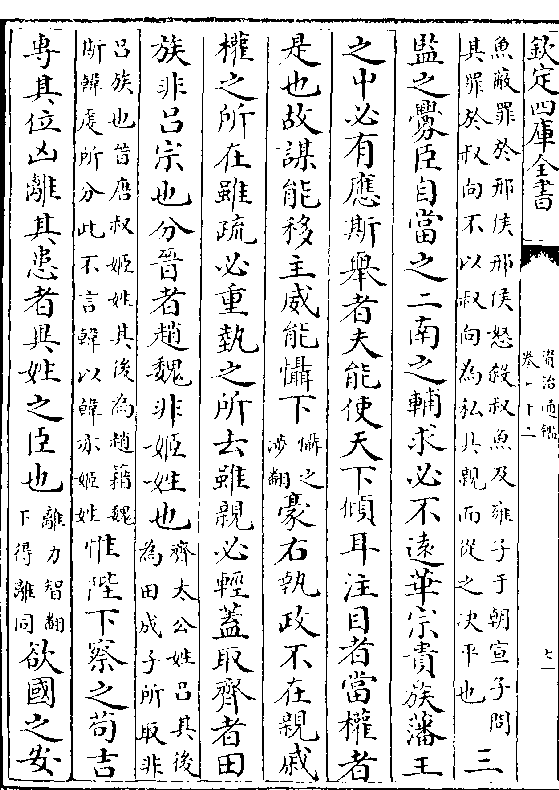 欽定四庫全書
資治通鑑
卷七十二
七
魚蔽罪於邢侯邢侯怒殺叔魚及雍子于朝宣子問
其罪於叔向叔向不以叔向為私其親而從之決平也
三
監之釁臣自當之二南之輔求必不遠華宗貴族藩王
之中必有應斯舉者夫能使天下傾耳注目者當權者
是也故謀能移主威能懾下
懾之
涉翻
豪右執政不在親戚
權之所在雖疏必重埶之所去雖親必輕蓋取齊者田
族非呂宗也分晉者趙魏非姬姓也
齊太公姓呂其後
為田成子所取非
呂族也昔唐叔姬姓其後為趙籍魏
斯韓䖍所分此不言韓以韓亦姬姓
惟陛下察之苟吉
專其位凶離其患者異姓之臣也
離力智翻
下得離同
欲國之安